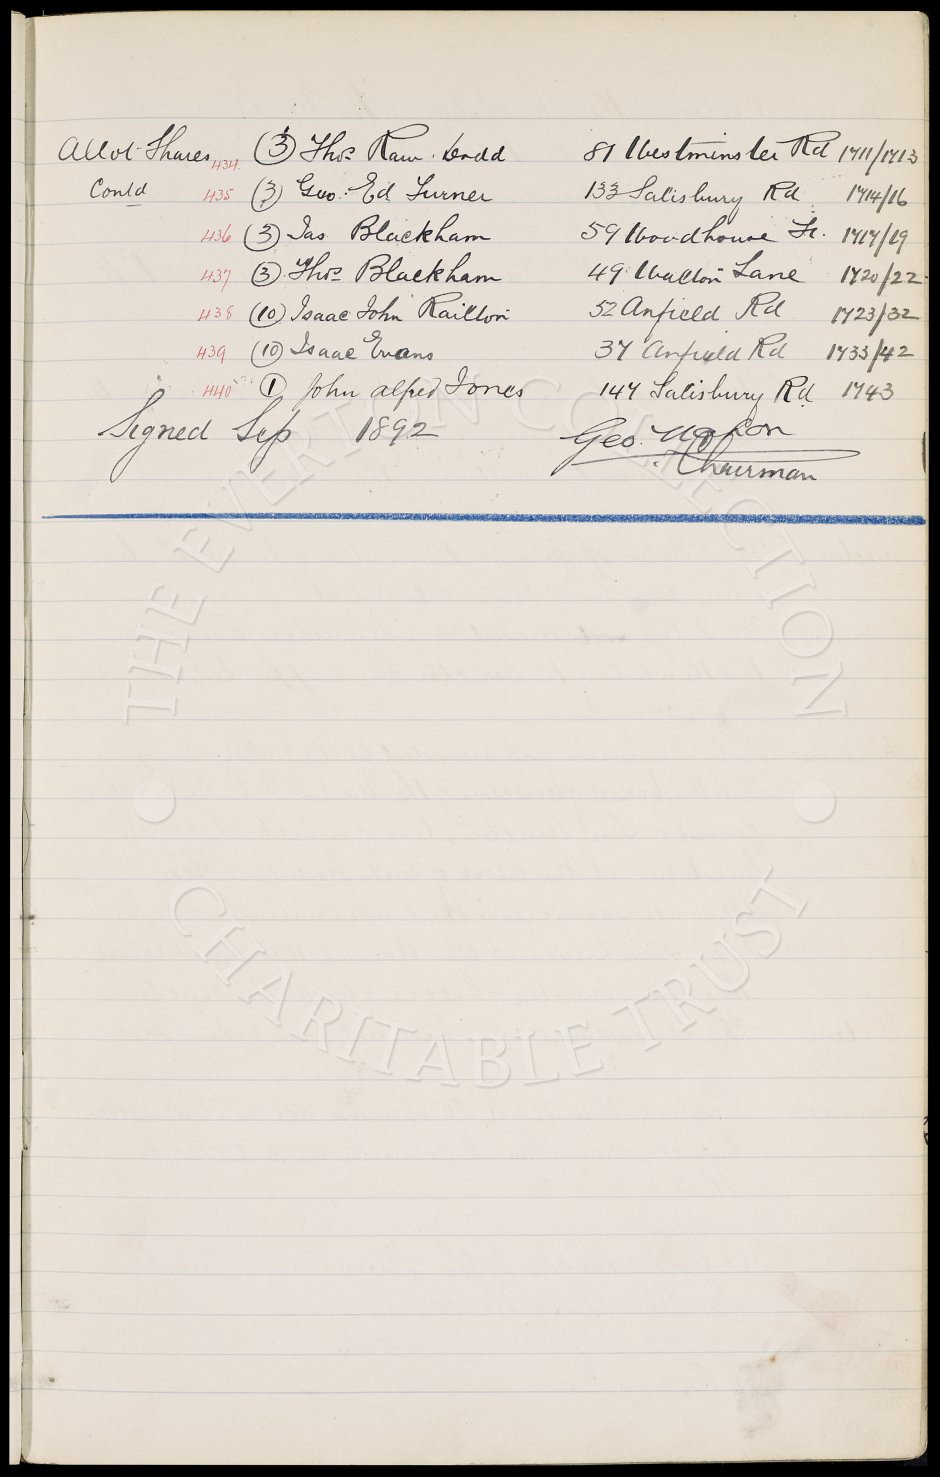 Allot Shares 434 (3) Thos Raw. Dodd 81 Westminster Rd 1711/1713
Contd 435 (3) Geo. Ed Turner 133 Salisbury Rd 1714/16
436 (3) Jas Blackham 59 Woodhouse St. 1717/19
437 (3) Thos Blackham 49 Walton Lane 1720/22
438 (10) Isaac John Railton 52 Anfield Rd 1723/32
439 (10) Isaac Evans 37 Anfield Rd 1733/42
440 (1) John Alfred Jones 147 Salisbury Rd 1743
Signed Sep 1892 Geo. Mahon
Chairman
THE EVERTON COLLECTION
CHARITABLE TRUST